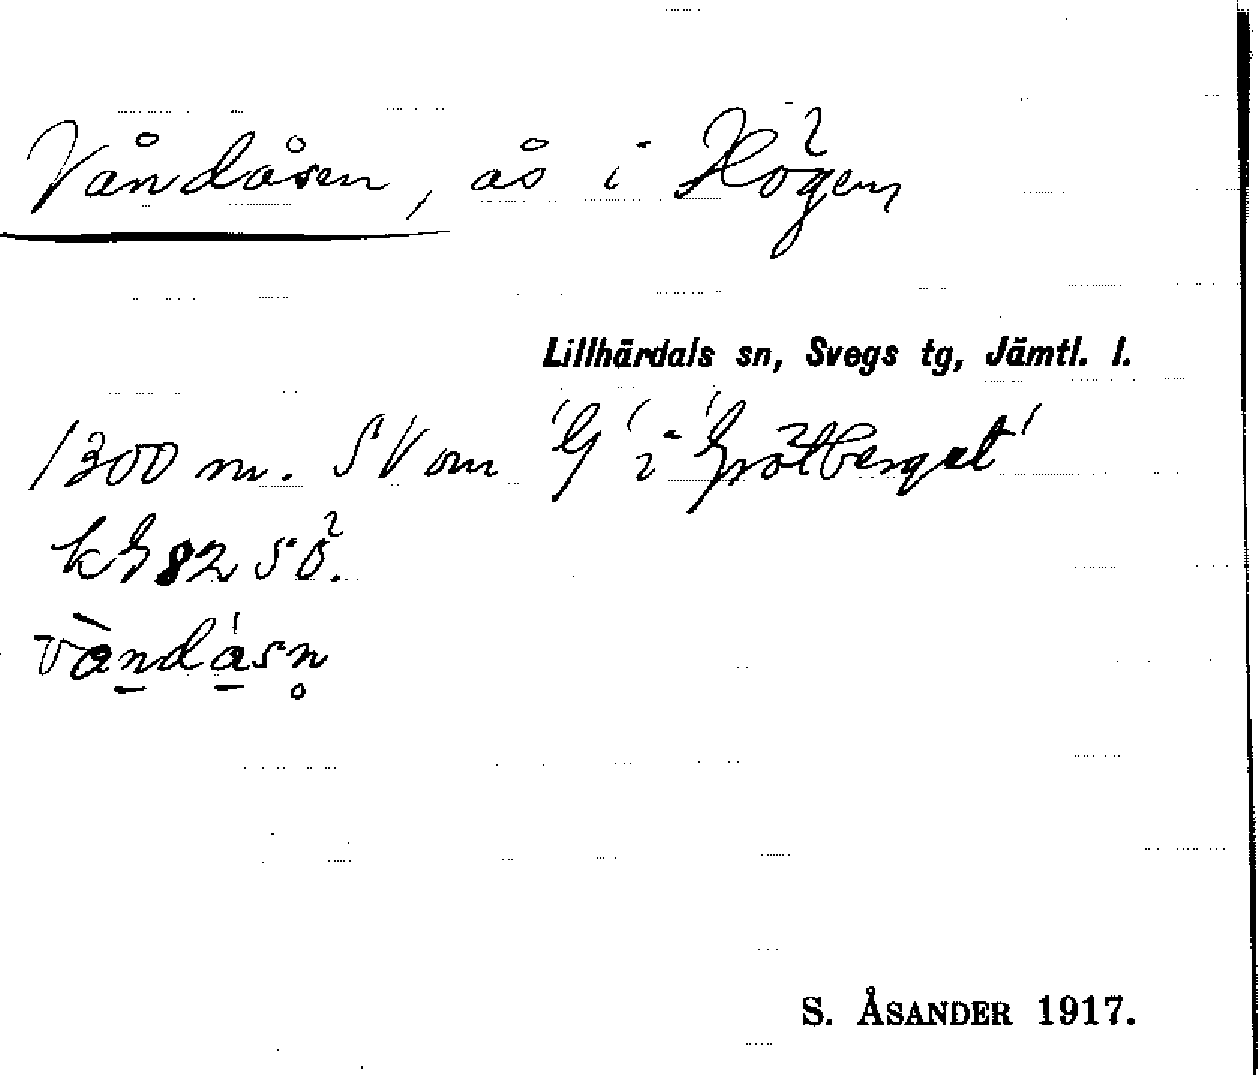 Våndåsen, ås i Högen
Lillhärdals sn, Svegs tg, Jämtl. l.
1300 m. SV om 'G' i 'Grötberget'
kg 82 SÖ.
vàndásn̥
S. ÅSANDER 1917.